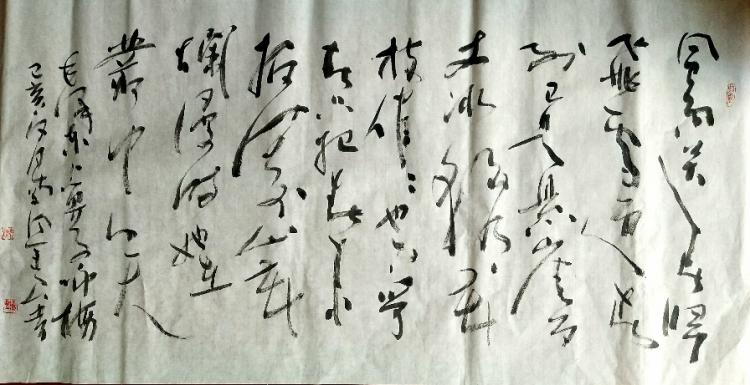 风雨送春归
飛雪迎春
到已是悬崖百
丈冰犹有花
枝俏俏也不争
春只把春来
报待到山花
爛漫时她在
丛中笑
毛泽东卜算子咏梅
己亥